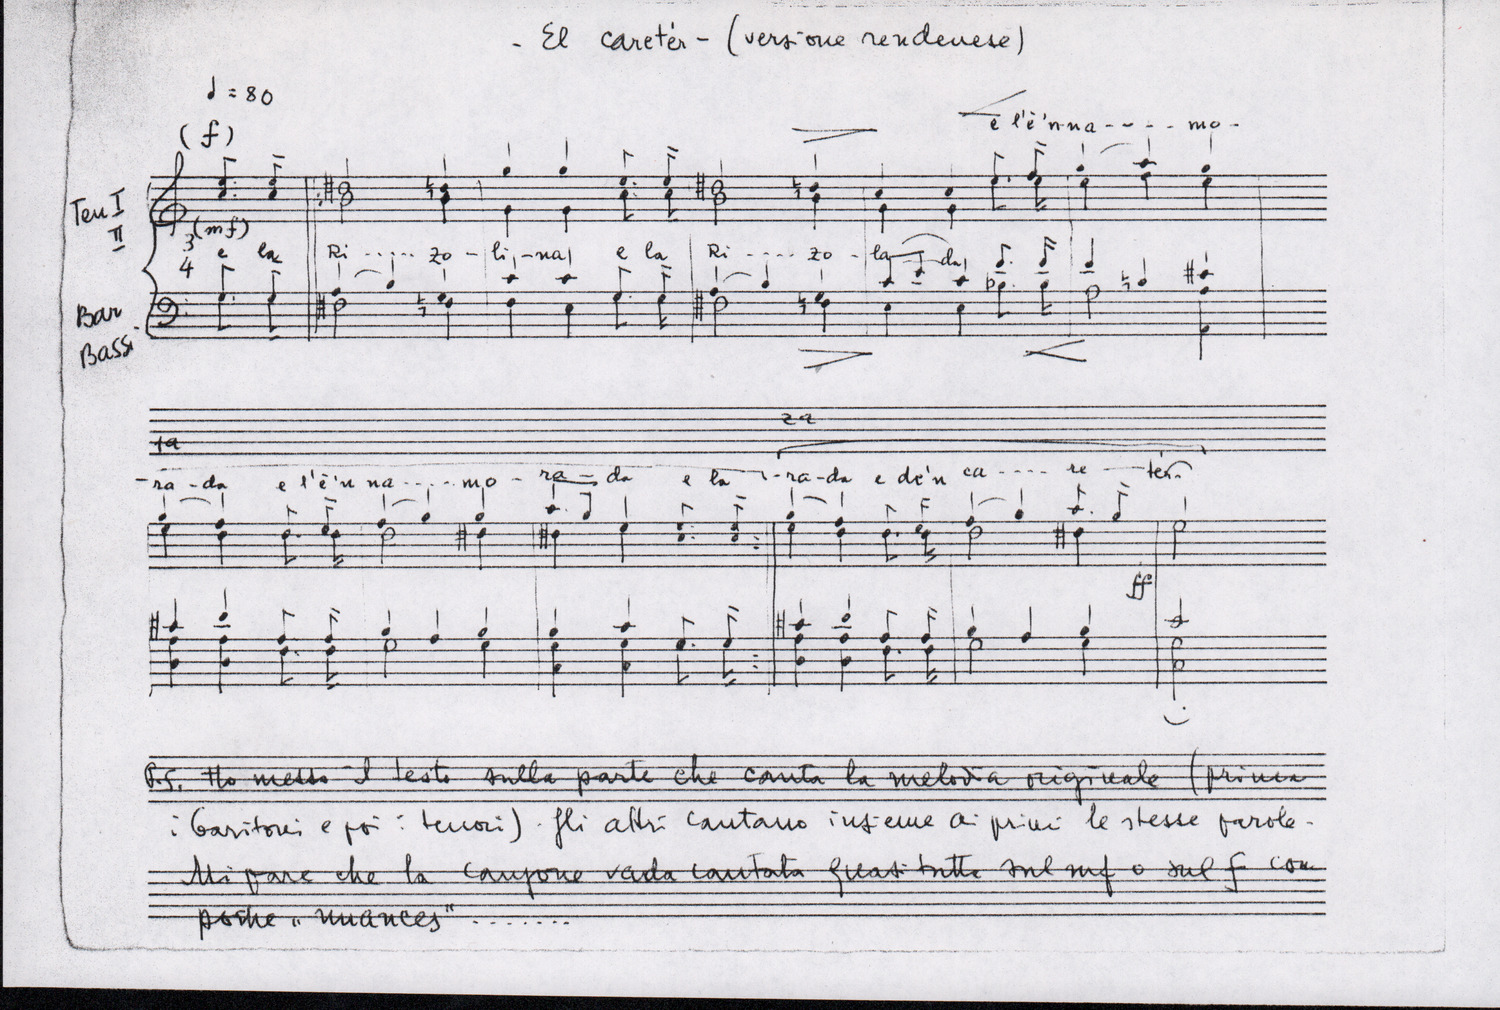 - El careter - (versione rendenese)
= 80
(f)
e l'è 'nna - - - - mo -
Ten I
II
(mf)
3
4
e la Ri - - - - - zo - li - na e la Ri - - - - zo - la - da
Bar
Bassi
1a
2a
- ra - da e l'è 'n na - - - - mo - ra - da e la - ra - da e de'n ca - - - - re - tér
ff
P.S. Ho messo il testo sulla parte che canta la melodia originale (prima
i baritoni e poi i tenori). Gli altri cantano insieme ai primi le stesse parole.
Mi pare che la canzone vada cantata quasi tutta sul mf o sul f con
poche "nuances" . . . . . . .